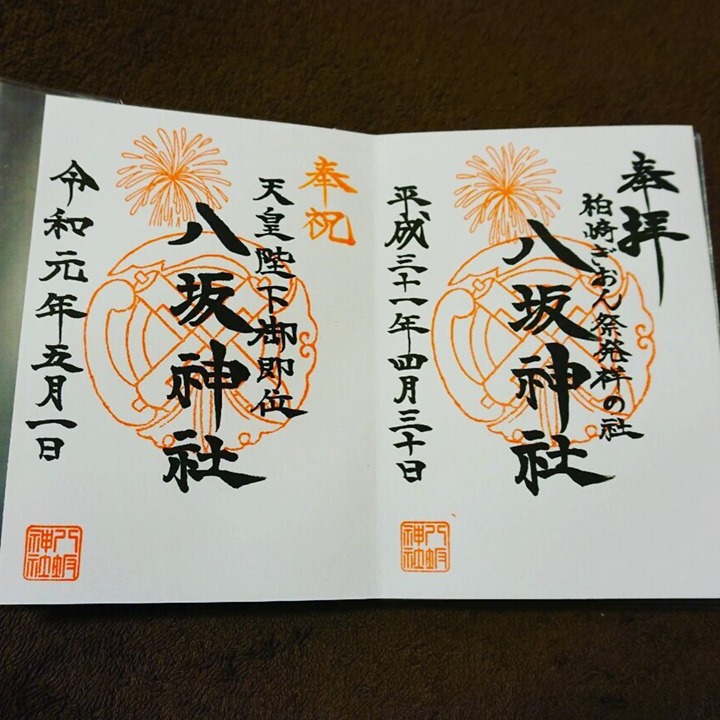 奉拝
柏崎ぎおん祭発祥の社
八坂神社
平成三十一年四月三十日
八坂神社
奉祝
天皇陛下御即位
八坂神社
令和元年五月一日
八坂神社